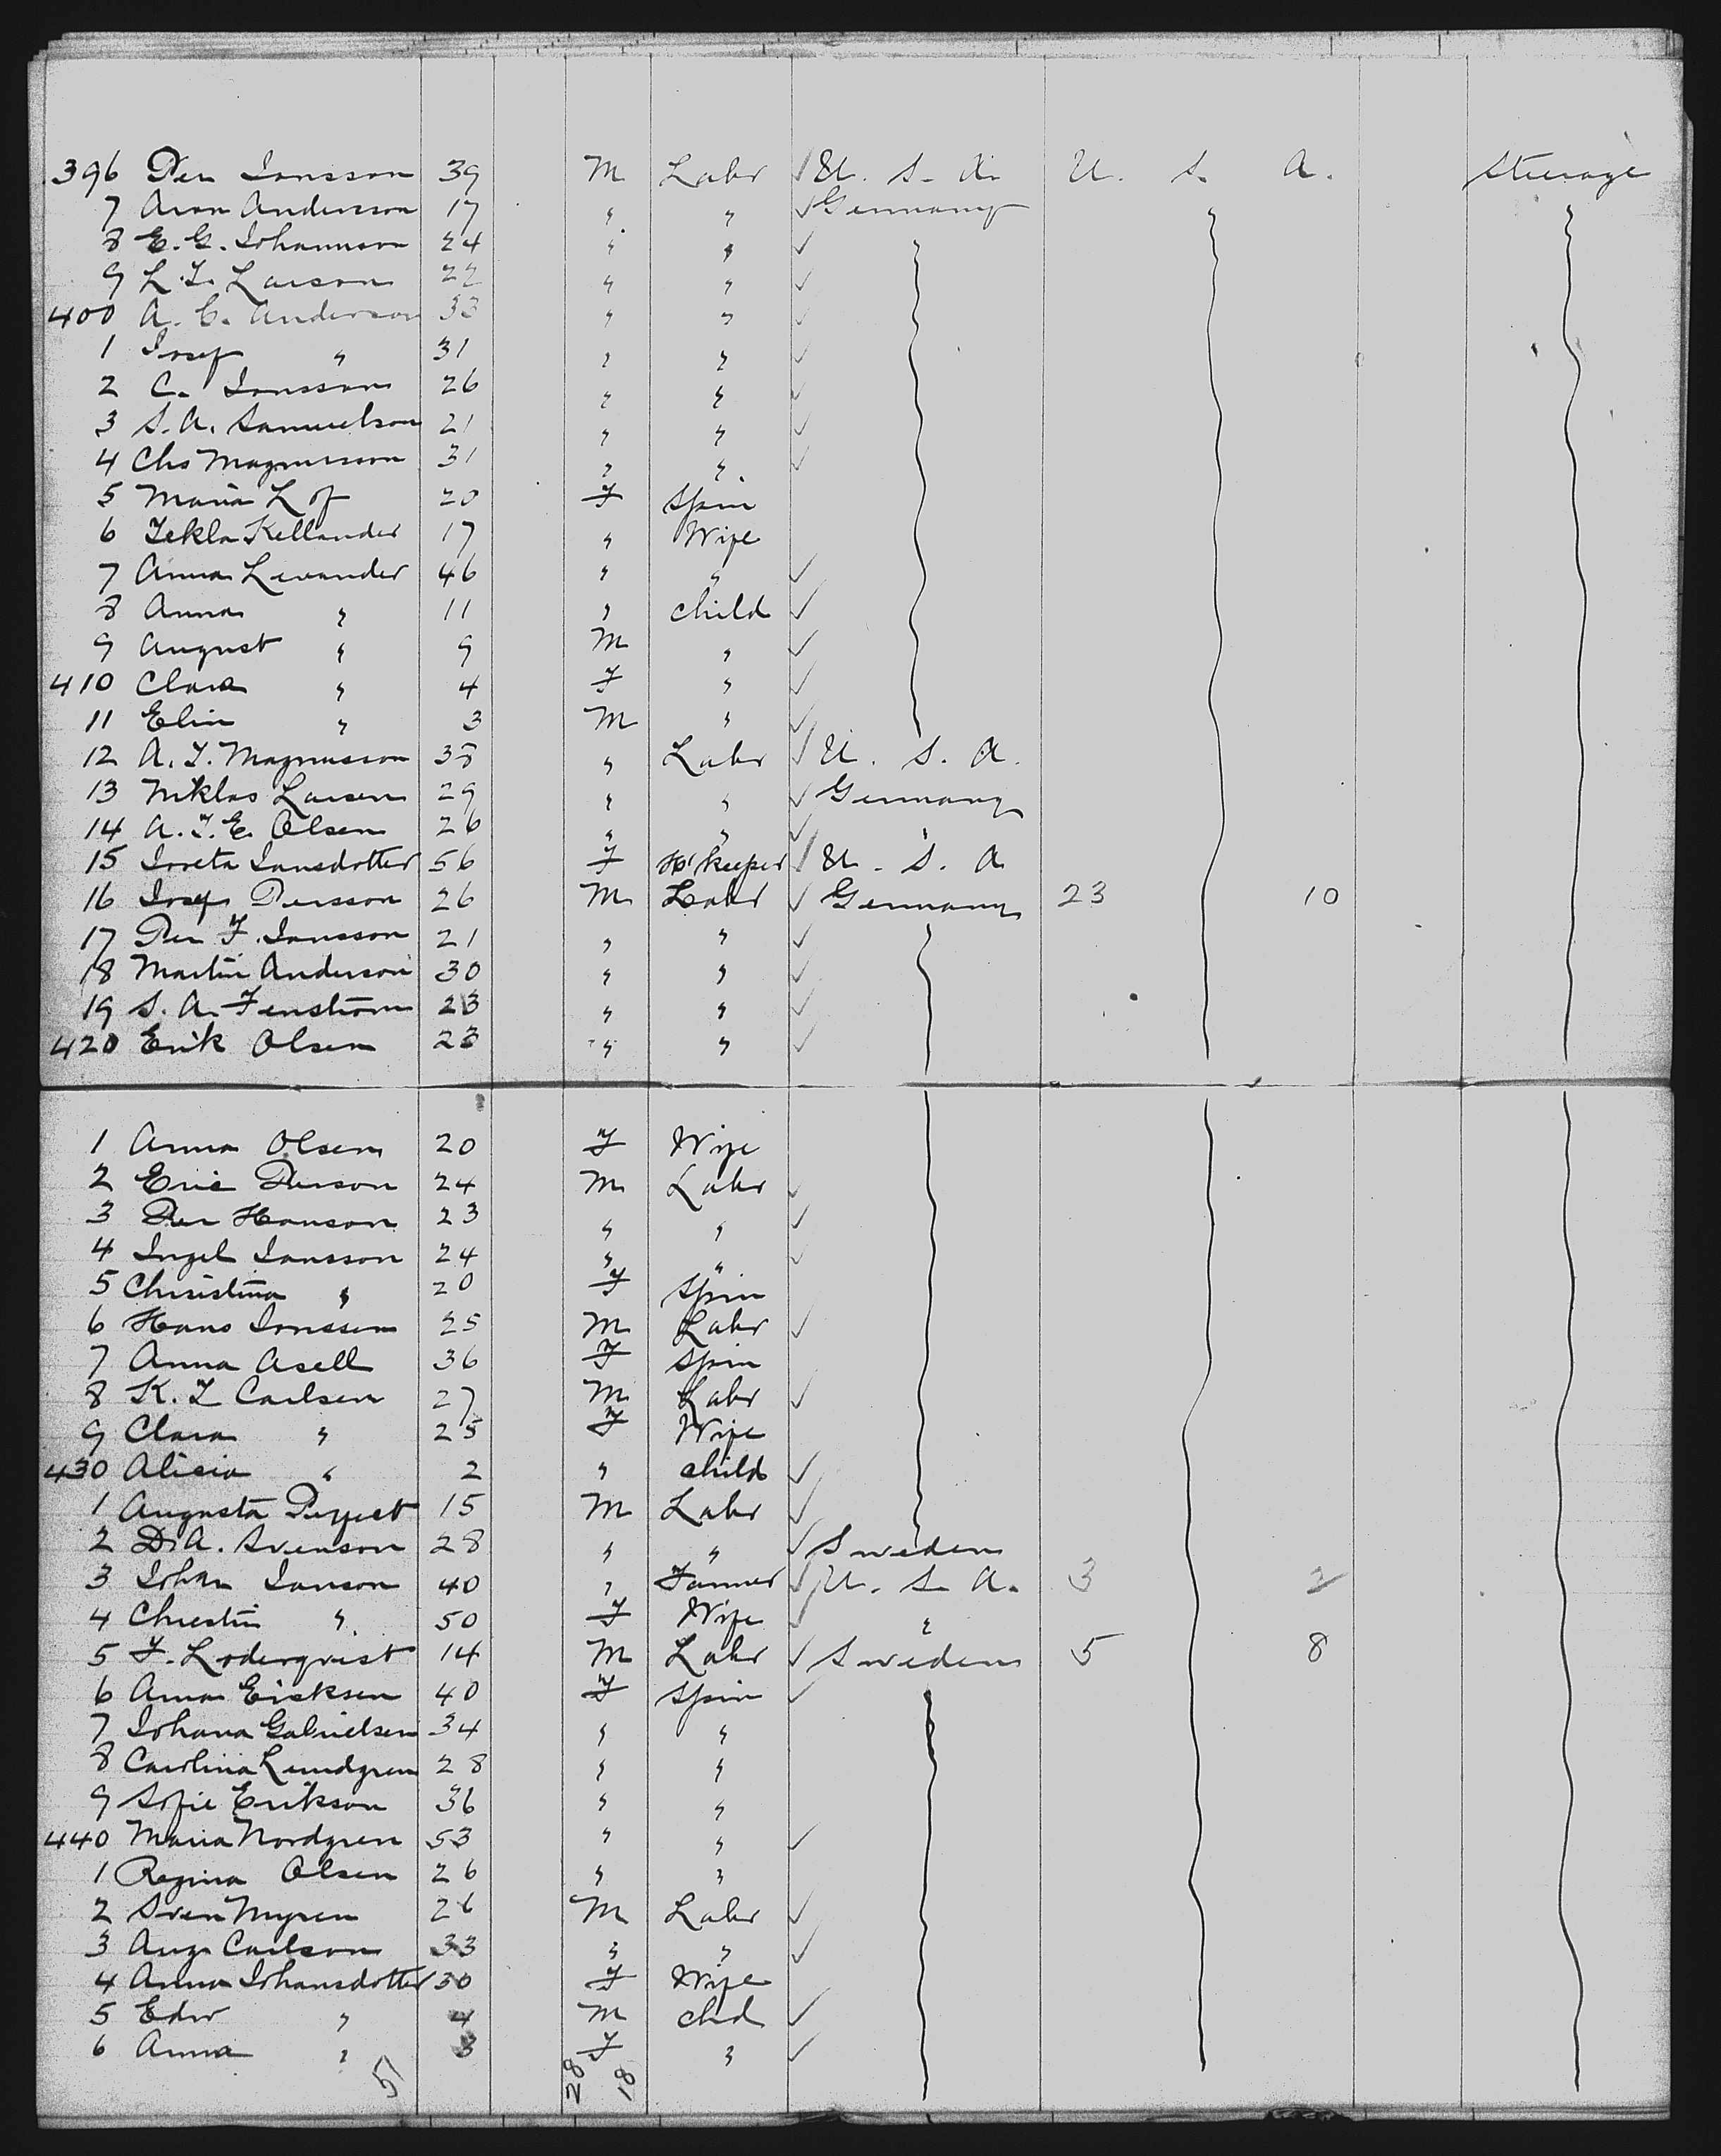 396 Per Jonsson 39 M Labr √ U. S. A. U. S. A. Steerage
7 Aron Anderson 17 " " √ Germany
8 E. G. Johannson 24 " " √
9 L. J. Larson 22 " " √
400 A. C. Anderson 33 " " √
1 Josef " 31 " " √
2 C. Jonsson 26 " " √
3 S. A. Samuelson 21 " " √
4 Chs Magnusson 31 " " √
5 Maria Lof 20 F Spin
6 Tekla Kellander 17 " Wife
7 Anna Levander 46 " " √
8 Anna " 11 " child √
9 August " 9 M " √
410 Clara " 4 F " √
11 Elin " 3 M " √
12 A. J. Magnusson 38 " Labr √ U. S. A.
13 Niklas Larsen 29 " " √ Germany
14 A. J. E. Olsen 26 " " √ "
15 Jonsdotter 56 F H'keeper √ U. S. A
16 Josef Persson 26 M Labr √ Germany 23 10
17 Per F. Jonsson 21 " " √
18 Martin Anderson 30 " " √
19 S. A. Fenstrom 23 " " √
420 Erik Olsen 23 " " √
1 Anna Olsen 20 F Wife
2 Eric Person 24 M Labr √
3 Per Hanson 23 " " √
4 Ingel Jansson 24 " " √
5 Christina " 20 F Spin
6 Hans Jonssen 25 M Labr √
7 Anna Asell 36 F Spin
8 K. J Carlsen 27 M Labr √
9 Clara " 25 F Wife
430 Alicia " 2 " child √
1 Augusta 15 M Labr √
2 D. A. Svenson 28 " " √ Sweden
3 Johan Janson 40 " Farmer √ U. S. A. 3 2
4 Chrestin " 50 F Wife √ "
5 F. Loderqvist 14 M Labr √ Sweden 5 8
6 Anna Ericksen 40 F Spin √
7 Johana Gabrielsen 34 " "
8 Carolina Lundgren 28 " "
9 Sofie Erikson 36 " "
440 Maria Nordgren 53 " " √
1 Regina Olsen 26 " "
2 Sven Nygren 26 M Labr √
3 Aug. Carlson 33 " " √
4 Anna Johansdotter 30 F Wife
5 Edw " 4 M chd √
6 Anna " 3 F " √
51 28 18